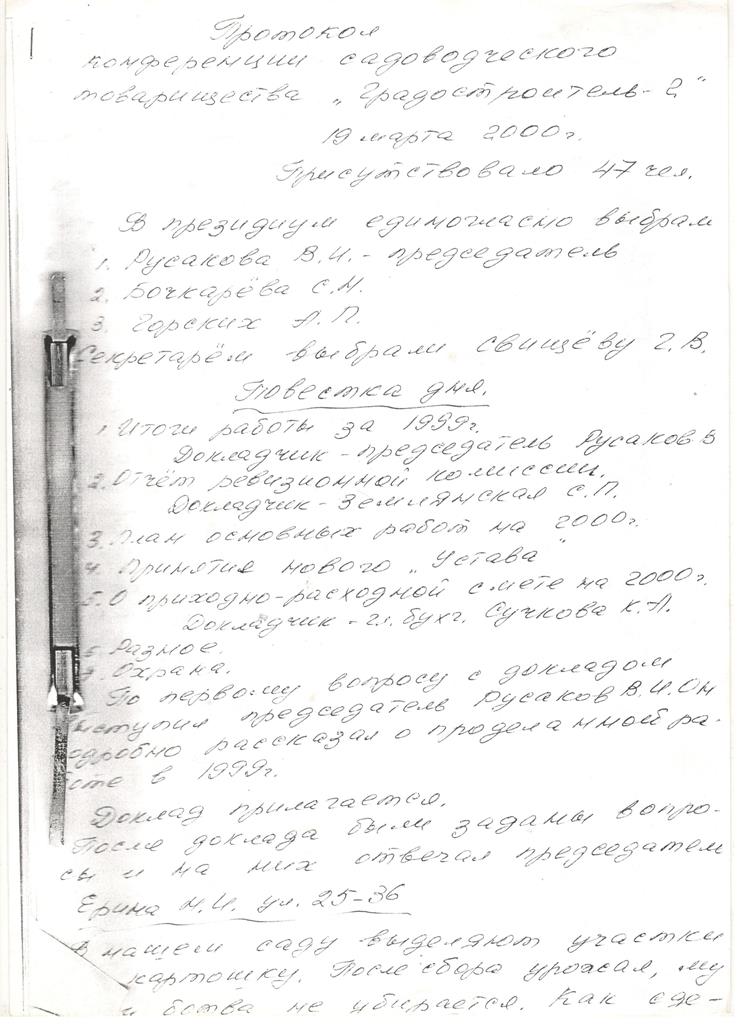 Протокол
конференции садоводческого
товарищества „Градостроитель-2"
19 марта 2000г.
Присутствовало 47 чел.
В президиум единогласно выбрали
1. Русакова В.И. - председатель
2. Бочкарёва С.Н.
3. Горских А.П.
Секретарём выбрали Свищёву Г.В.
Повестка дня.
1. Итоги работы за 1999г.
Докладчик - председатель Русаков В
2. Отчёт ревизионной комиссии.
Докладчик - Землянская С.П.
3. План основных работ на 2000г.
4. Принятия нового „Устава"
5. О приходно-расходной смете на 2000г.
Докладчик - гл. бухг. Сучкова К.А.
6. Разное.
7. Охрана.
По первому вопросу с докладом
выступил председатель Русаков В.И. Он
подробно рассказал о проделанной ра-
боте в 1999г.
Доклад прилагается.
После доклада были заданы вопро-
сы и на них отвечал председатель
Ерина Н.И. ул. 25-36
В нашем саду выделяют участки
картошку. После сбора урожая, му
и ботва не убирается. Как сде-